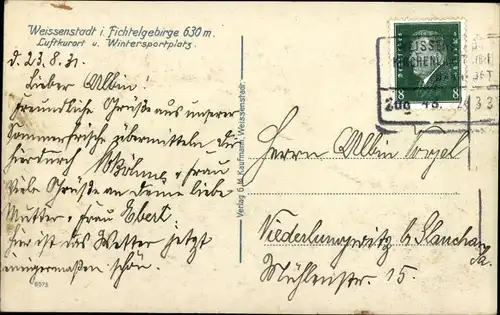 Weissenstadt i. Fichtelgebirge 630 m.
Luftkurort u. Wintersportplatz.
d. 23.8.31.
Lieber Albin!
freundliche Grüße aus unserer
Sommerfrische übermitteln dir
hierdurch Böhme u. Frau
Viele Grüße an deine liebe
Mutter u. Frau Ebert.
hier ist das Wetter jetzt
einigermaßen schön.
6075
Verlag G.M. Kaufmann, Weissenstadt.
DEUTSCHES REICH
8 8
Zug
Herrn Albin
b. 
Sa.
Mühlenstr. 15.